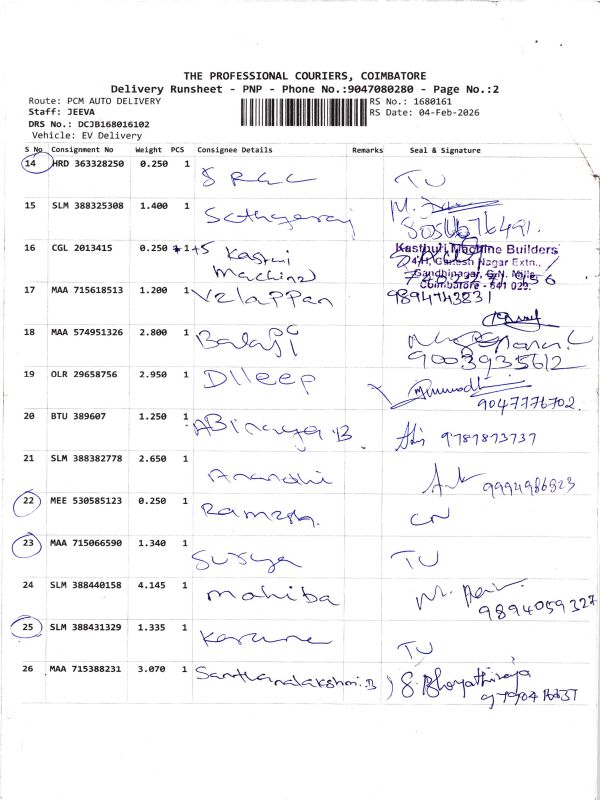 THE PROFESSIONAL COURIERS, COIMBATORE
Delivery Runsheet - PNP - Phone No.:9047080280 - Page No.:2
Route: PCM AUTO DELIVERY RS No.: 1680161
Staff: JEEVA RS Date: 04-Feb-2026
DRS No.: DCJB168016102
Vehicle: EV Delivery
S No Consignment No Weight PCS Consignee Details Remarks Seal & Signature
14 HRD 363328250 0.250 1 TU
15 SLM 388325308 1.400 1 Sathyaraj
16 CGL 2013415 0.250 1 +5 Kasturi
Machines
Kasthuri Machine Builders
Gandhinagar, G.N. Mills,
Coimbatore - 641 029.
17 MAA 715618513 1.200 1 Velappan 9894743831
18 MAA 574951326 2.800 1 Balaji
9003935612
19 OLR 29658756 2.950 1 Dileep
9047776702
20 BTU 389607 1.250 1 ABinaya.B 9787873737
21 SLM 388382778 2.650 1 Anandhi 9994986823
22 MEE 530585123 0.250 1 Ramesh CN
23 MAA 715066590 1.340 1 Surya TU
24 SLM 388440158 4.145 1 mahiba
9894059327
25 SLM 388431329 1.335 1 TU
26 MAA 715388231 3.070 1 Santhanalakshmi.B